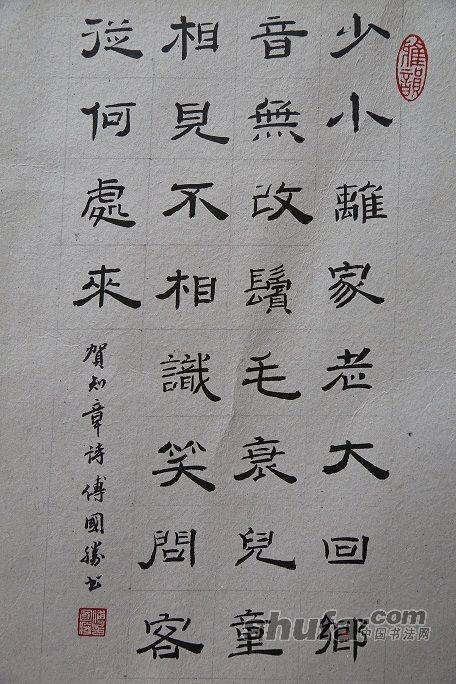 雅韻
少小離家老大回鄉
音無改鬢毛衰兒童
相見不相識笑問客
從何處來
賀知章詩傅國勝书
shufa.com
中国书法网